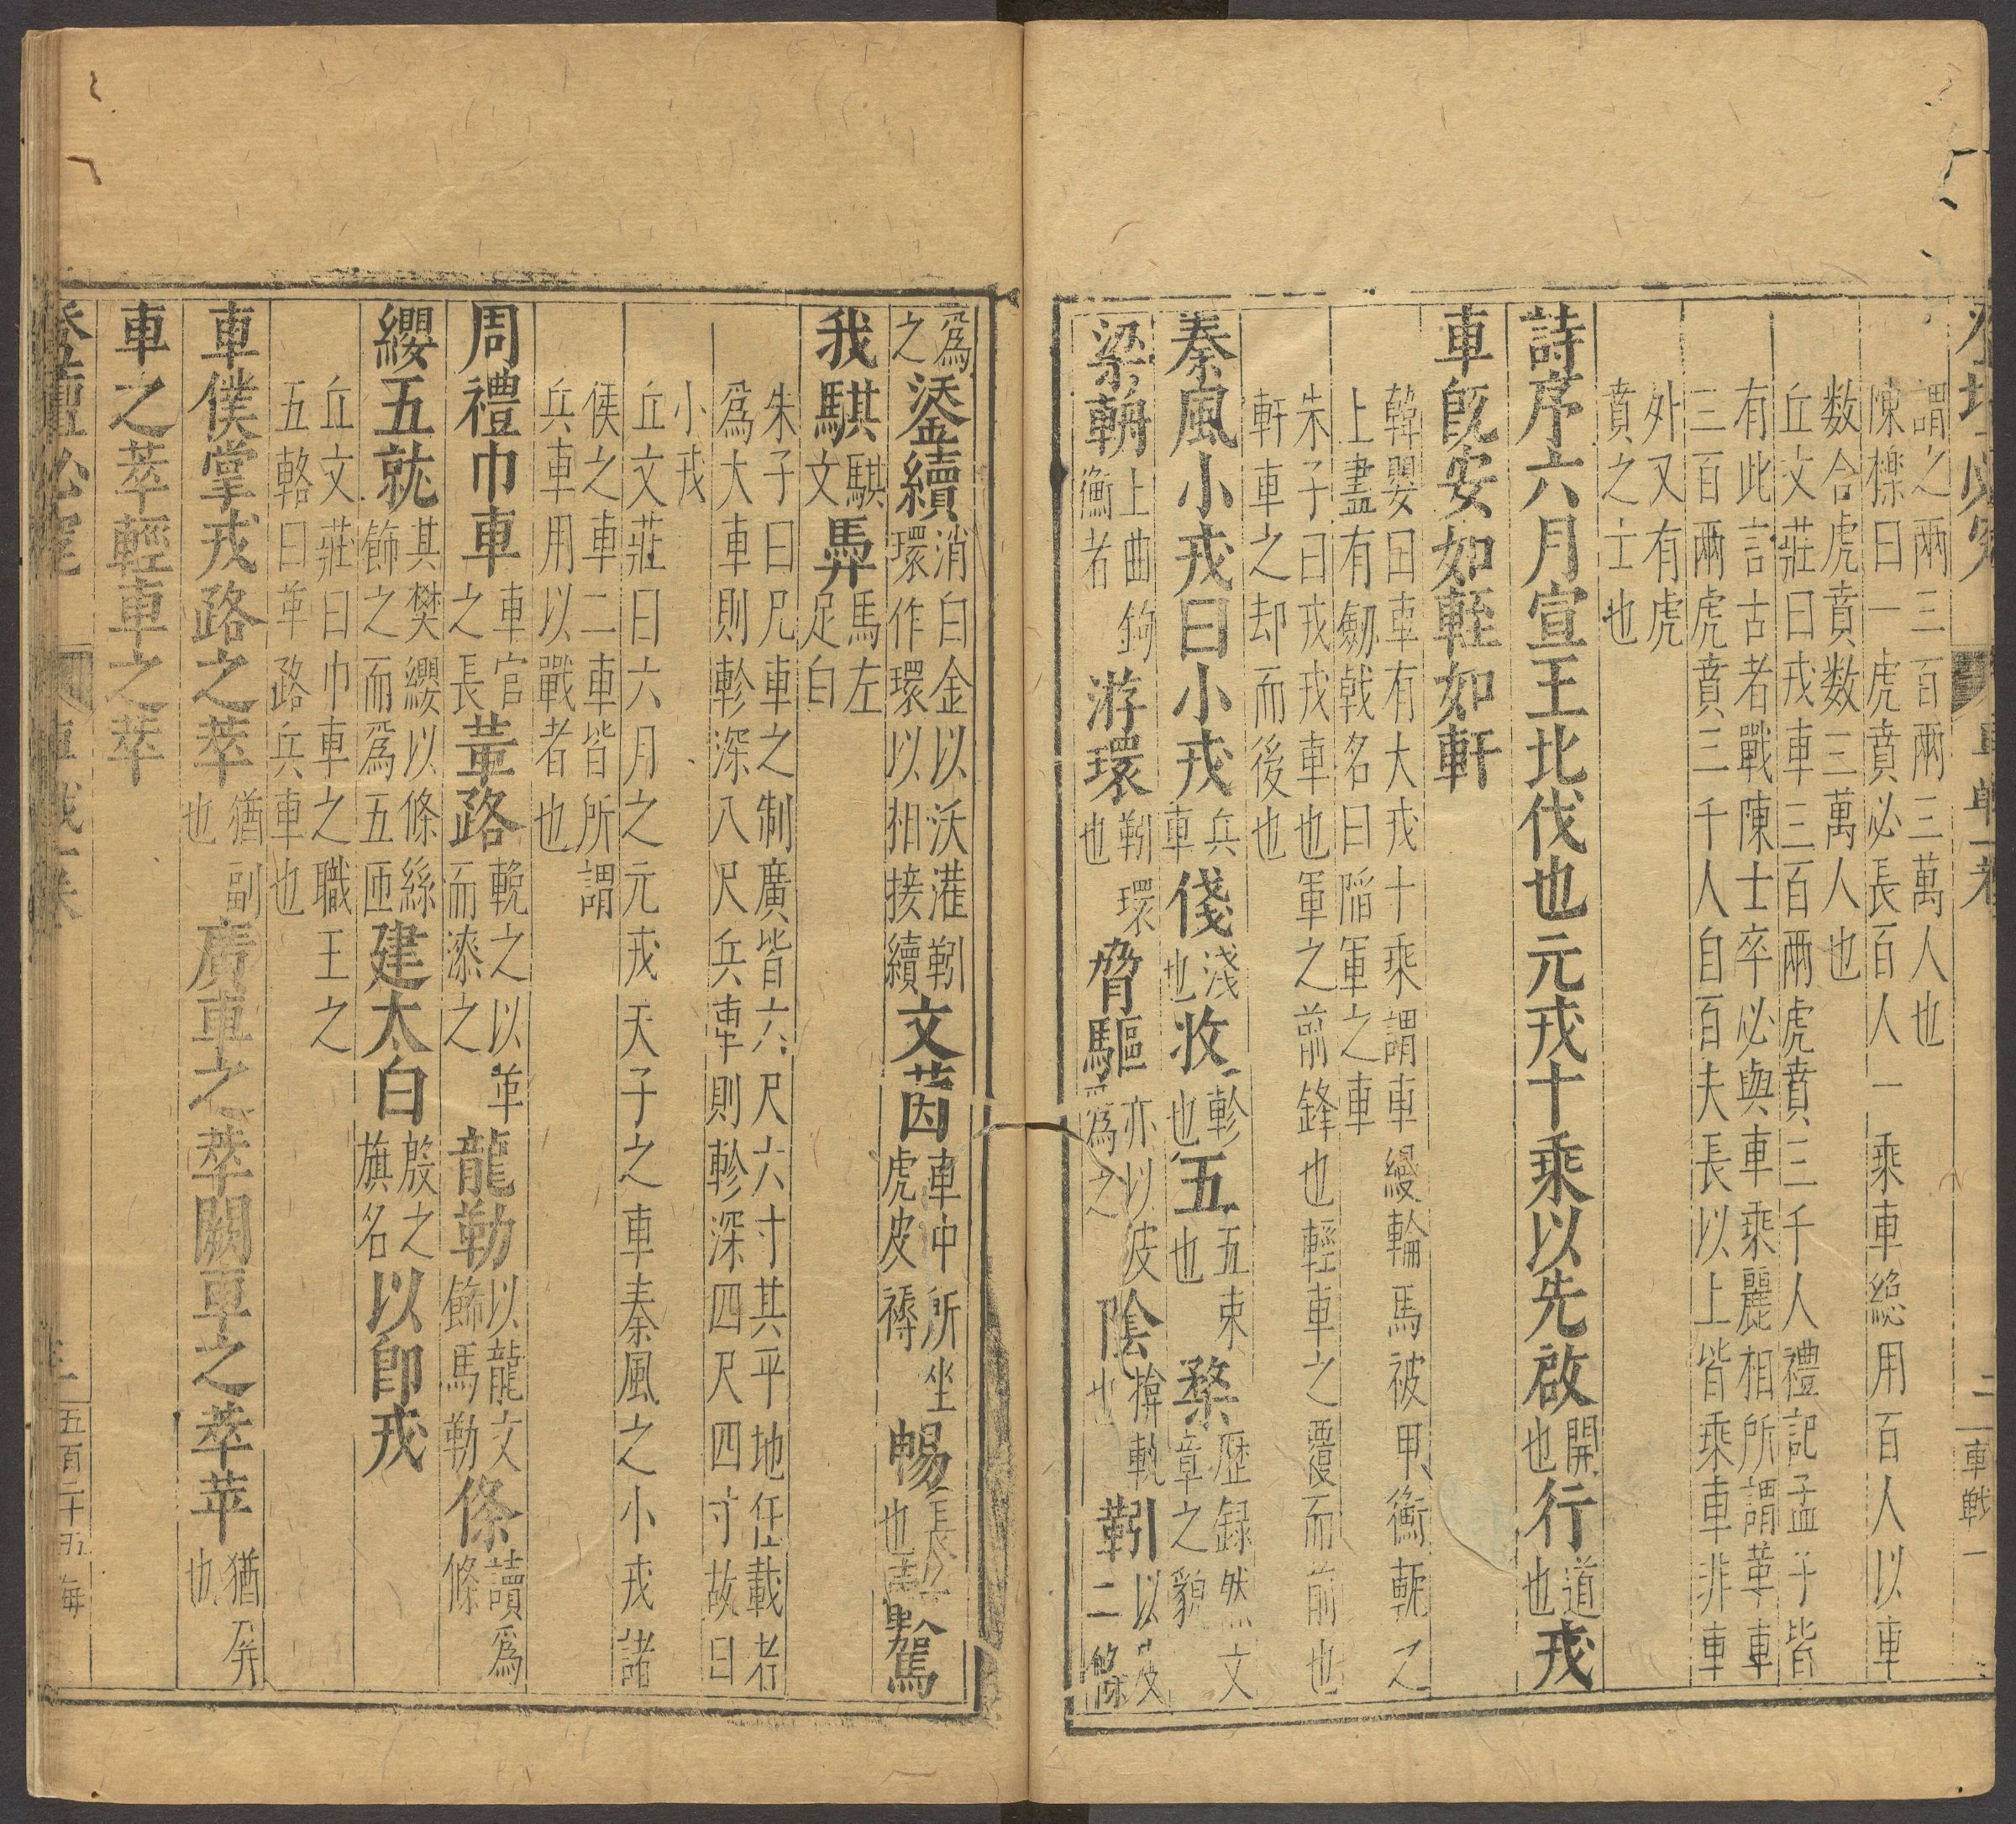 車戰一
謂之兩三百兩三萬人也
陳櫟曰一虎賁必長百人一乘車總用百人以車
数合虎賁数三萬人也
丘文莊曰戎車三百兩虎賁三千人禮記孟子皆
有此言古者戰陳士卒必與車乘麗相所謂革車
三百兩虎賁三千人自百夫長以上皆乘車非車
外又有虎
賁之士也
詩序六月宣王北伐也元戎十乘以先啟開也行道也戎
車旣安如輊如軒
韓嬰曰車有大戎十乘謂車縵輪馬被甲衡軛之
上盡有劒戟名曰陷軍之車
朱子曰戎戎車也軍之前鋒也輕車之覆而前也
軒車之却而後也
秦風小戎曰小戎兵車俴淺也收軫也五五束也楘歷録然文章之貌
梁輈上曲鉤衡者游環靷環也脅驅亦以皮爲之陰揜軌也靷以皮二條
爲之鋈續消白金以沃灌靷環作環以相接續文茵車中所坐虎皮褥暢長也轂駕
我騏騏文馬馵馬左足白
朱子曰凡車之制廣皆六尺六寸其平地任載者
爲大車則軫深八尺兵車則軫深四尺四寸故曰
小戎
丘文莊曰六月之元戎天子之車秦風之小戎諸
侯之車二車皆所謂
兵車用以戰者也
周禮巾車車官之長革路輓之以革而漆之龍勒以龍文飾馬勒條讀爲絛
纓五就其樊纓以絛絲飾之而爲五匝建太白殷之旗名以卽戎
丘文莊曰巾車之職王之
五輅曰革路兵車也
車僕掌戎路之萃猶副也廣車之萃闕車之萃苹猶屏也
車之萃輕車之萃
五百二十五